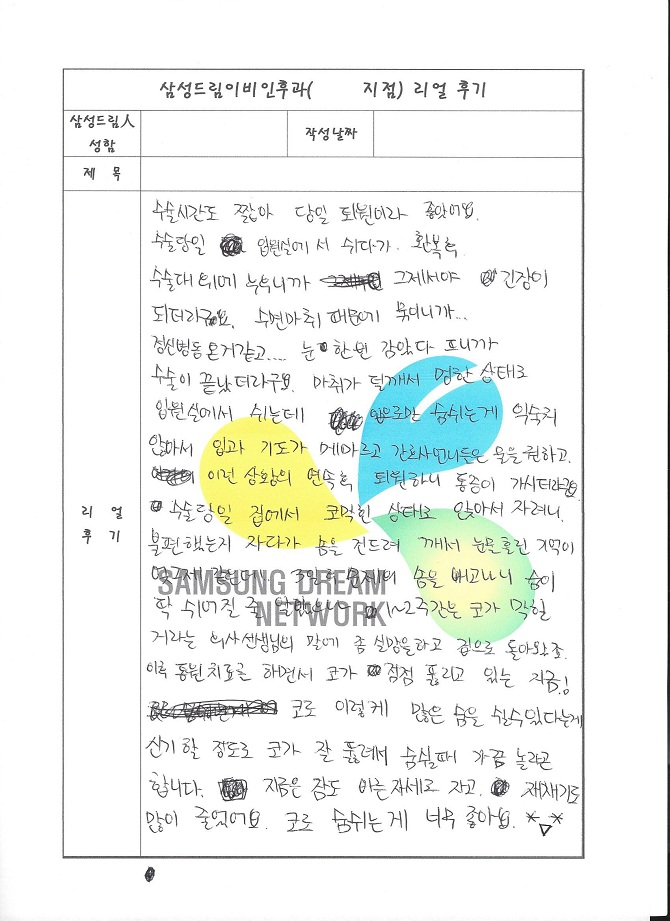 삼성드림이비인후과( 지점) 리얼 후기
삼성드림人 성함
작성날짜
제 목
리 얼 후 기
수술시간도 짧아 당일 퇴원이라 좋았어요.
수술당일 입원실에서 쉬다가 환복후
수술대 위에 누우니까 그제서야 긴장이
되더라구요. 수면마취 때문에 묶이니까...
정신병동 온거같고.... 눈 한번 감았다 뜨니까
수술이 끝났더라구요. 마취가 덜깨서 멍한 상태로
입원실에서 쉬는데 입으로만 숨쉬는게 익숙치
않아서 입과 기도가 메마르고 간호사언니들은 물을 권하고.
이런 상황의 연속후 퇴원하니 통증이 가시더라구요
수술당일 집에서 코막힌 상태로 앉아서 자려니.
불편했는지 자다가 솜을 건드려 깨서 눈물흘린 기억이
엊그제 같은데. 3일후 문제의 솜을 빼고나니 숨이
확 쉬어질 줄 알았으나 1~2주간은 코가 막힐
거라는 의사선생님의 말에 좀 실망을하고 집으로 돌아왔죠.
이후 통원치료를 하면서 코가 점점 뚫리고 있는 지금!
코로 이렇게 많은 숨을 쉴수있다는게
신기할 정도로 코가 잘 뚫려서 숨쉴때 가끔 놀라곤
합니다. 지금은 잠도 바른자세로 자고. 재채기도
많이 줄었어요. 코로 숨쉬는게 너무 좋아요. *▽*
SAMSUNG DREAM
NETWORK